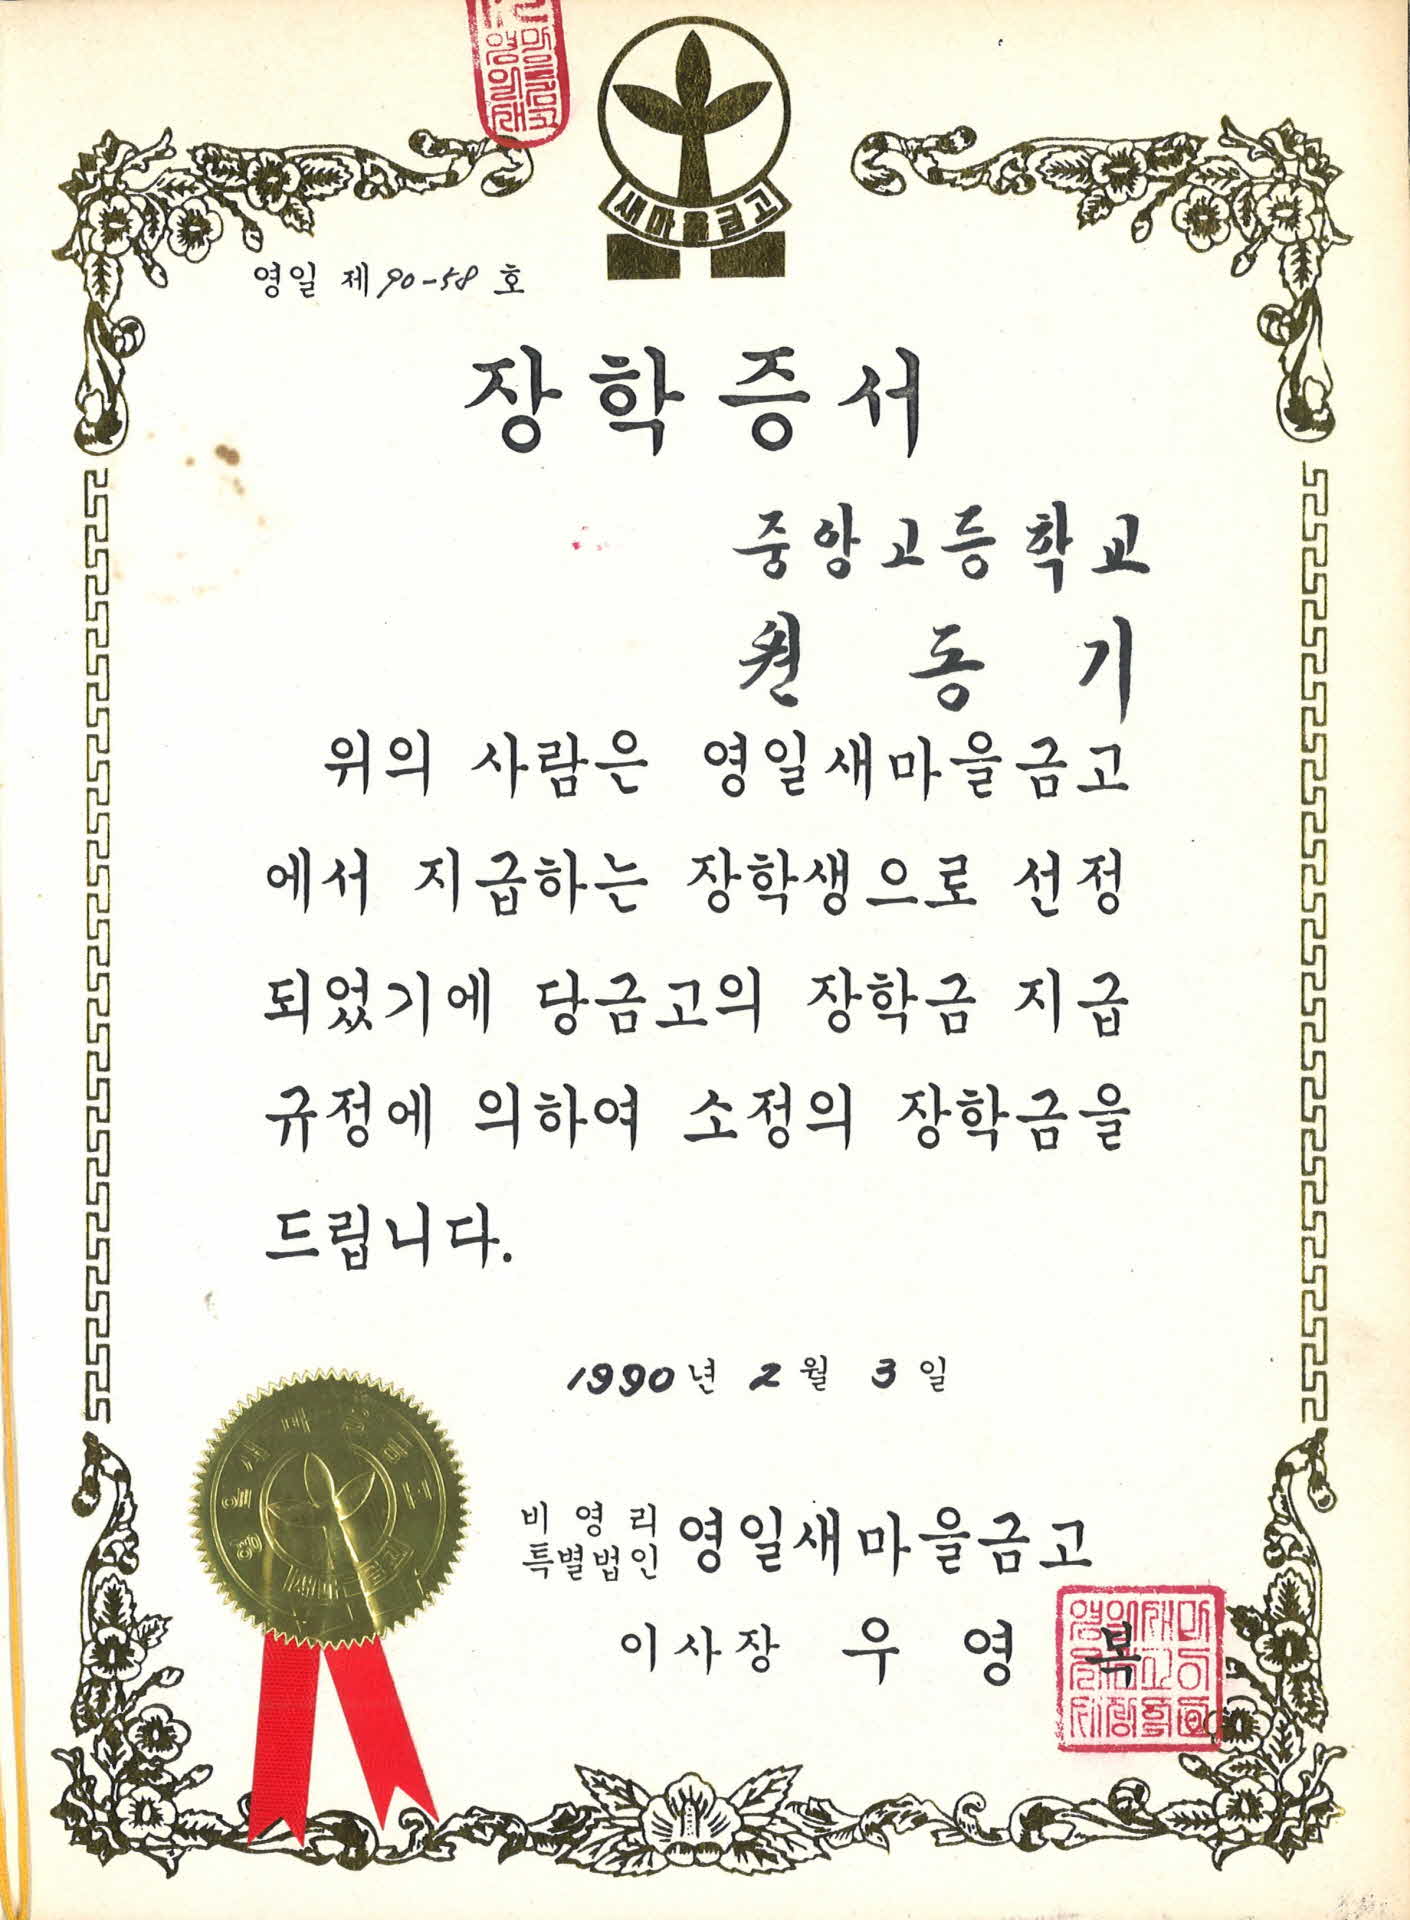 새마을금고
영일 제 90-58 호
장학증서
중앙고등학교
원 동 기
위의 사람은 영일새마을금고
에서 지급하는 장학생으로 선정
되었기에 당금고의 장학금 지급
규정에 의하여 소정의 장학금을
드립니다.
1990년 2월 3일
영일새마을금고
새마을금고
비영리
특별법인 영일새마을금고
이사장 우 영 복